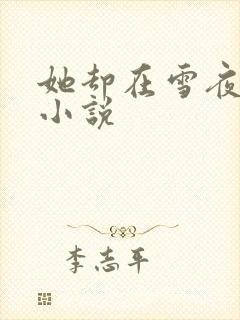 她却在雪夜
小说
李志平